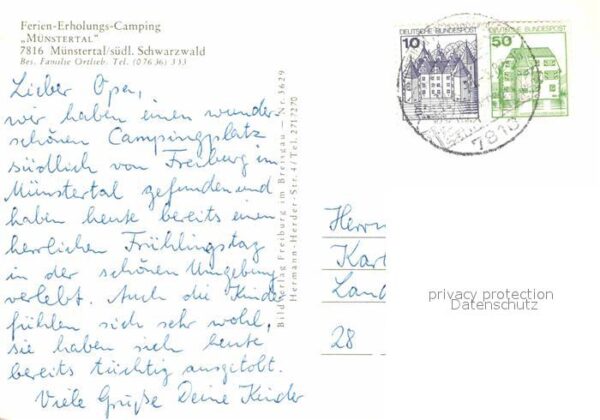 Ferien-Erholungs-Camping
„MÜNSTERTAL"
7816 Münstertal/südl. Schwarzwald
Bes. Familie Ortlieb. Tel. (0 76 36) 3 53
Lieber Opa,
wir haben einen wunder-
schönen Campingplatz
südlich von Freiburg im
Münstertal gefunden und
haben heute bereits einen
herrlichen Frühlingstag
in der schönen Umgebung
verlebt. Auch die Kinder
fühlen sich sehr wohl,
sie haben sich heute
bereits tüchtig ausgetobt.
Viele Grüße Deine Kinder
Bildverlag Freiburg im Breisgau – Nr. 3629
Hermann-Herder-Str. 4 / Tel. 27 17 270
DEUTSCHE BUNDESPOST
10
DEUTSCHE BUNDESPOST
50
7813
Herrn
Kar
Lan
28
privacy protection
Datenschutz